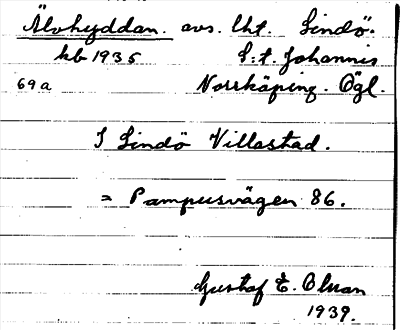 Älvhyddan. avs. lht. Lindö.
kb 1935 S:t Johannis
69a Norrköping. Ögl.
I Lindö Villastad.
= Pampusvägen 86.
Gustaf E. Olman
1939.